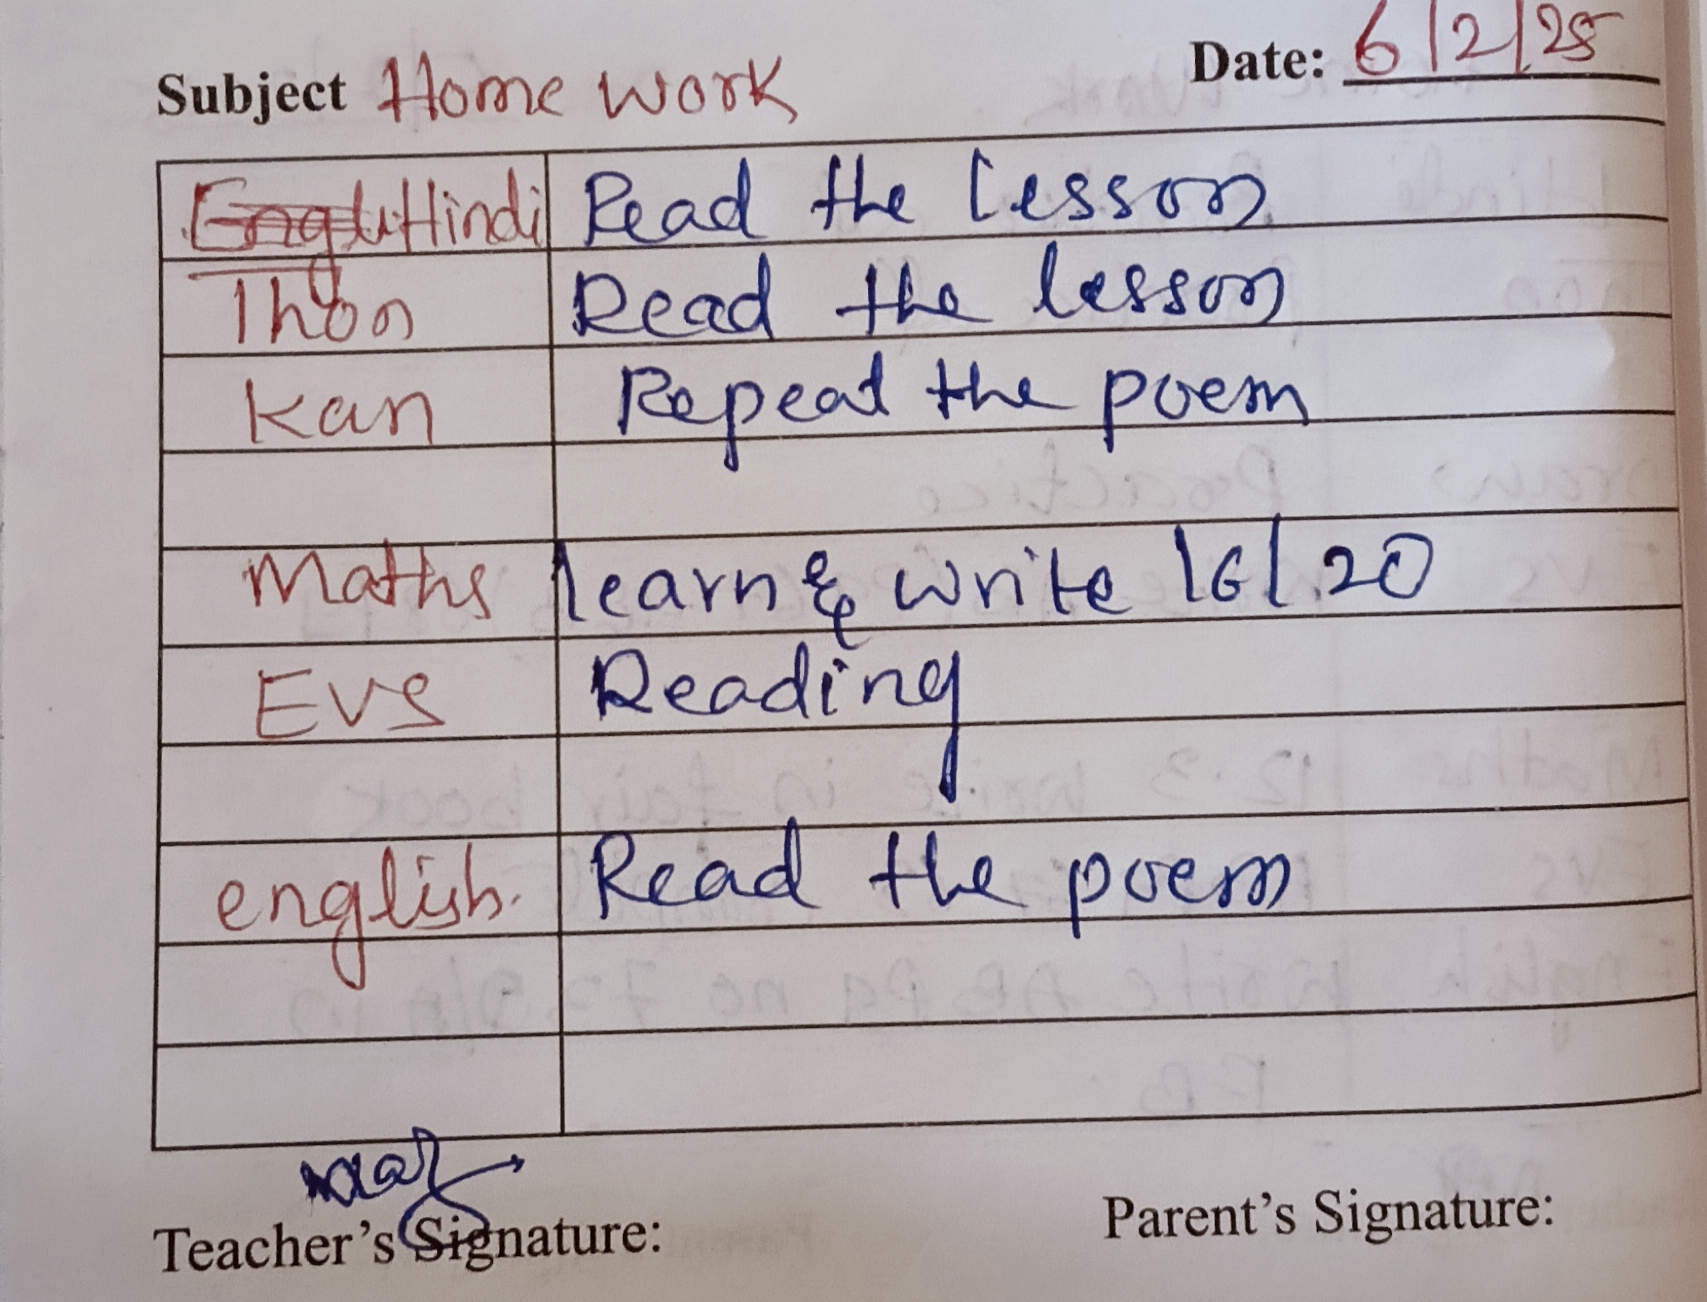 Subject Home work Date: 6/2/25
Hindi Read the lesson
Thon Read the lesson
Kan Repeat the poem
Maths learn & write 16/20
Evs Reading
english. Read the poem
Teacher's Signature: Parent's Signature: